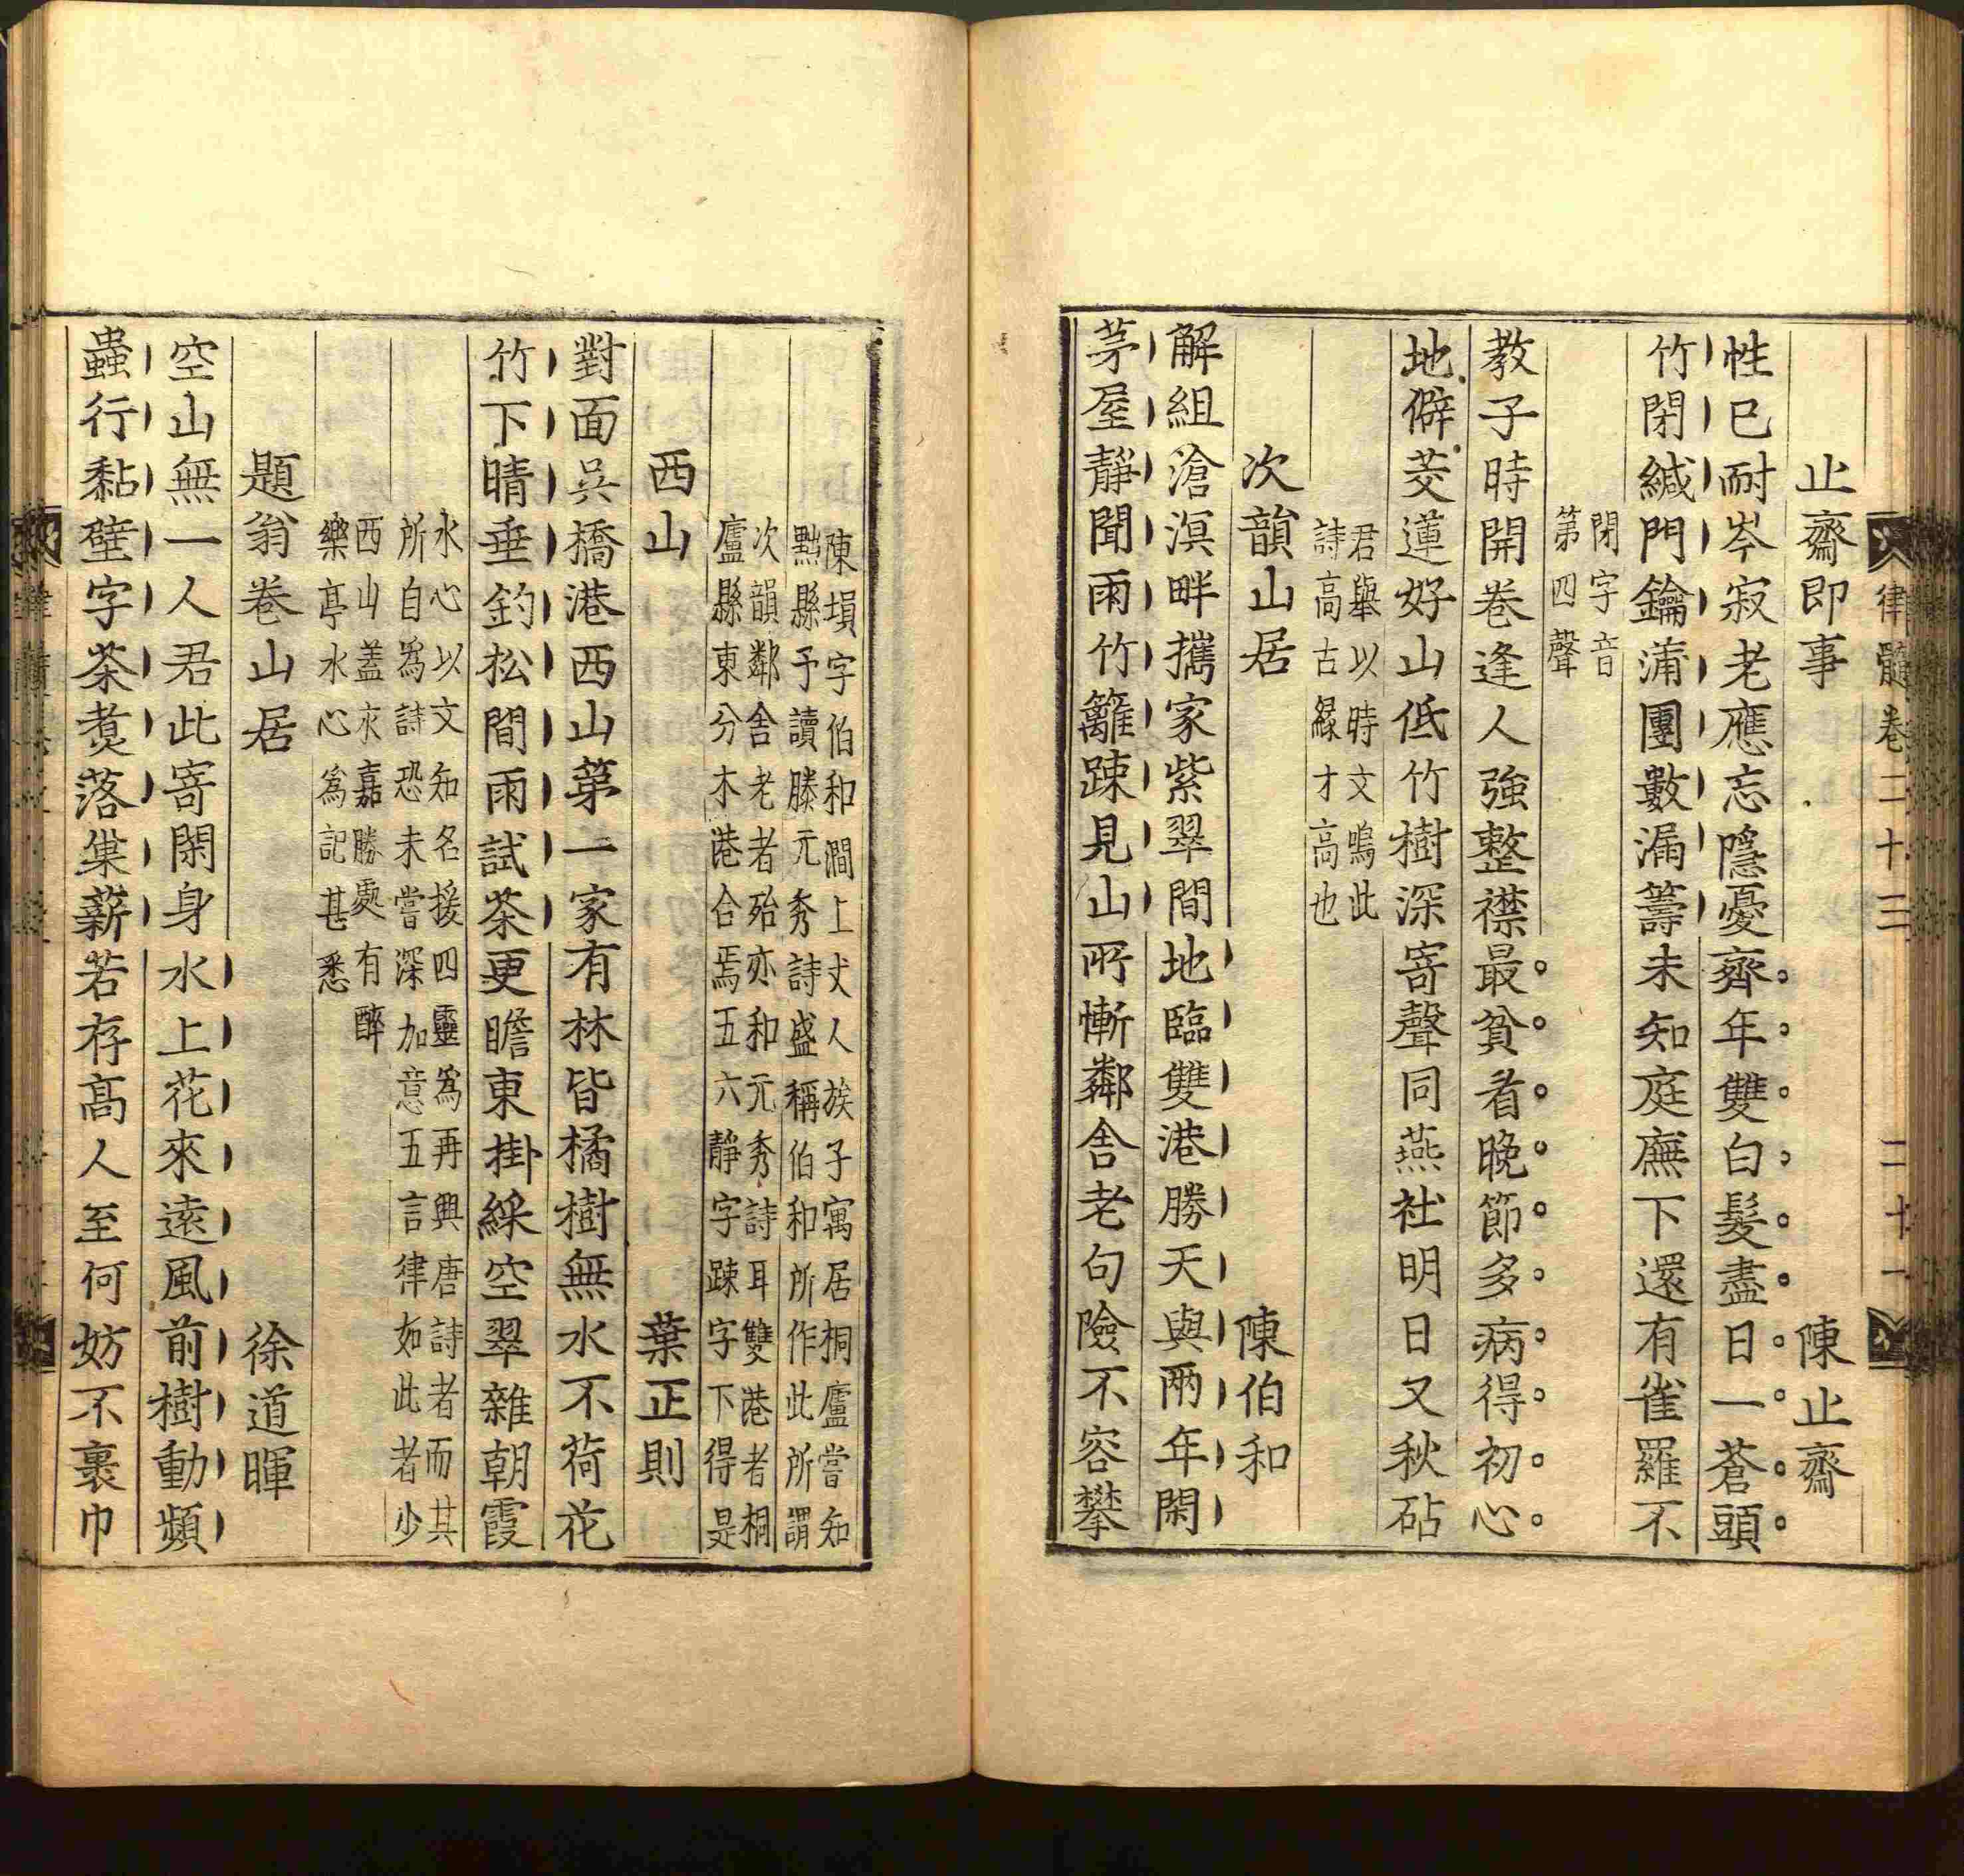 律髓卷二十三 二十一
止齋即事 陳止齋
性已耐岑寂老應忘隱憂齊年雙白髮盡日一蒼頭
竹閉緘門鑰蒲團數漏籌未知庭廡下還有雀羅不
閉字音
第四聲
教子時開卷逢人強整襟最貧看晚節多病得初心
地僻茭蓮好山低竹樹深寄聲同燕社明日又秋砧
君舉以時文鳴此
詩高古緣才高也
次韻山居 陳伯和
解組滄溟畔攜家紫翠間地臨雙港勝天與兩年閑
茅屋靜聞雨竹籬踈見山所慚鄰舍老句險不容攀
陳塤字伯和澗上丈人族子寓居桐廬嘗知
黟縣予讀滕元秀詩盛稱伯和所作此所謂
次韻鄰舍老者殆亦和元秀詩耳雙港者桐
廬縣東分木港合焉五六靜字踈字下得是
西山 葉正則
對面吳橋港西山第一家有林皆橘樹無水不荷花
竹下晴垂釣松間雨試茶更瞻東掛綵空翠雜朝霞
水心以文知名援四靈為再興唐詩者而其
所自為詩恐未嘗深加意五言律如此者少
西山蓋永嘉勝處有醉
樂亭水心為記甚悉
題翁卷山居 徐道暉
空山無一人君此寄閑身水上花來遠風前樹動頻
蟲行黏壁字茶煑落巢薪若存高人至何妨不裹巾